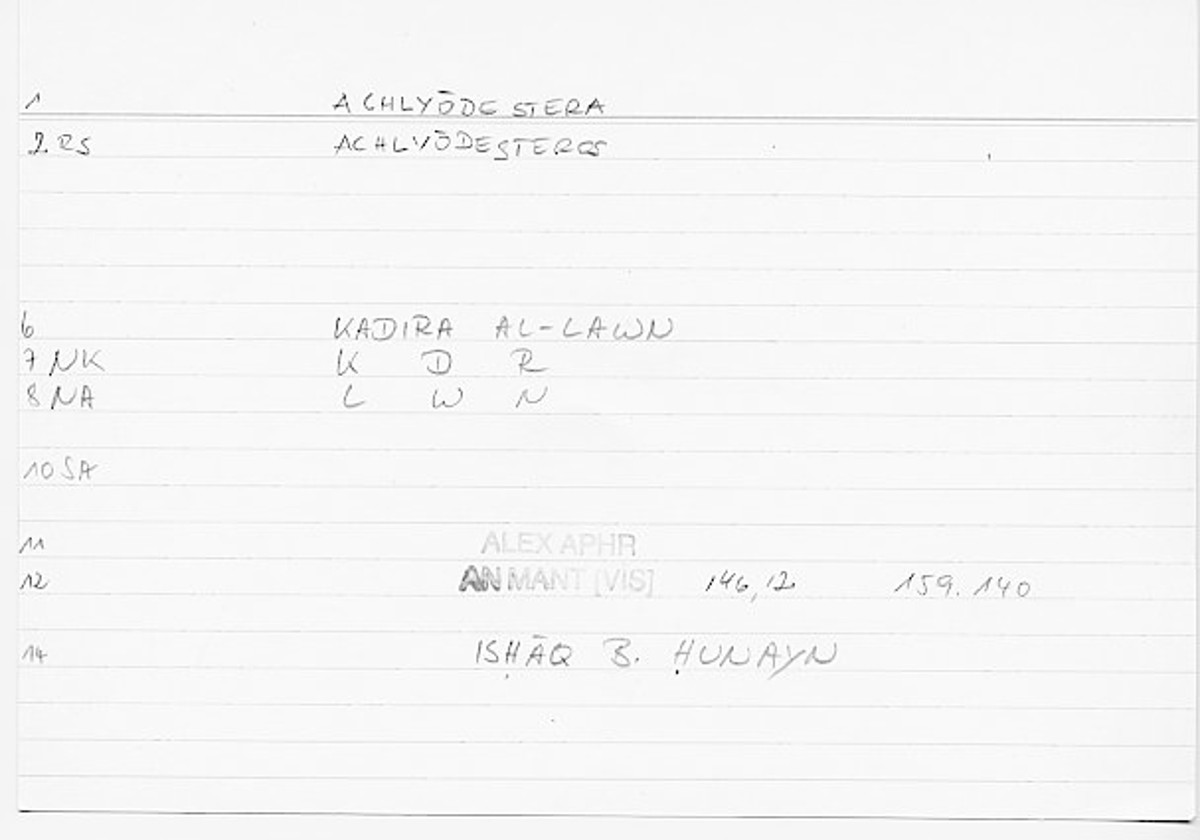 1 ACHLYŌDESTERA
2 RS ACHLYŌDESTEROS
6 KADIRA AL-LAWN
7 NK K D R
8 NA L W N
10 SA
11 ALEX APHR
12 AN MANT [VIS] 146,12 159.140
14 ISḤĀQ B. ḤUNAYN